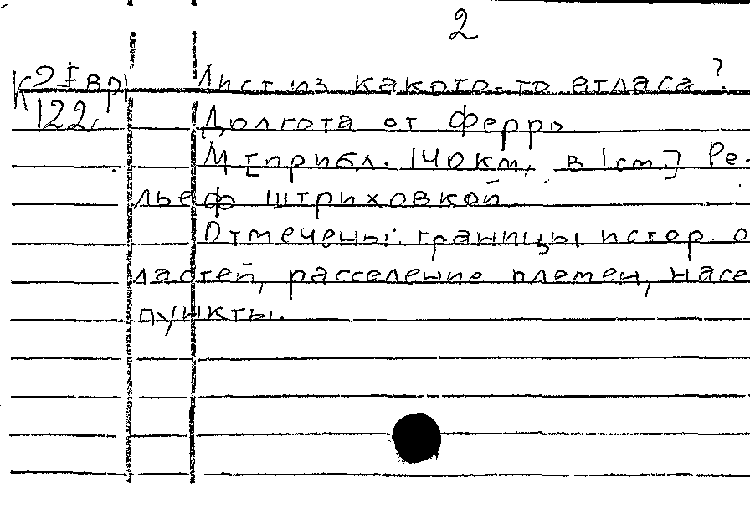 2
К 2 I вр Лист из какого-то атласа?
122, Долгота от Ферро
М [прибл. 140км, в 1см.] Ре-
льеф штриховкой
Отмечены: границы истор. о
ластей, расселение племен, насе
пункты.